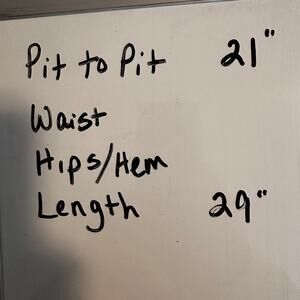 Pit to Pit 21"
Waist
Hips/Hem
Length 29"